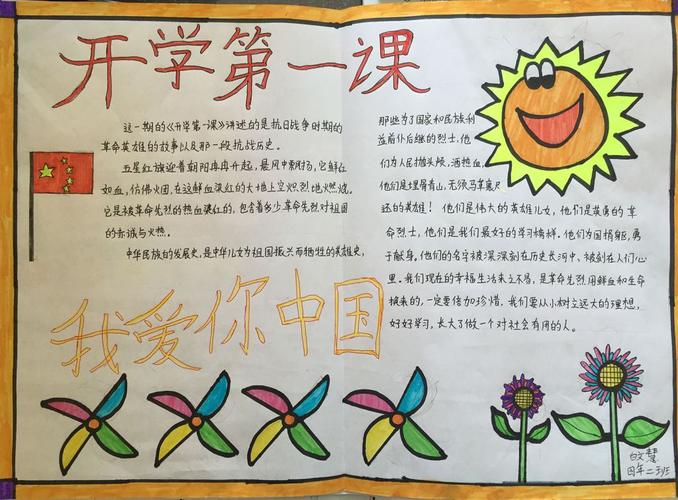 开学第一课
这一期的《开学第一课》讲述的是抗日战争时期的
革命英雄的故事以及那一段抗战历史。
五星红旗迎着朝阳冉冉升起，晨风中飘扬，它鲜红
如血，仿佛火团，在这鲜血染红的大地上空炽烈地燃烧。
它是被革命先烈的热血染红的，包含着多少革命先烈对祖国
的赤诚与火热。
中华民族的发展史，是中华儿女为祖国振兴而牺牲的英雄史，
那些为了国家和民族利
益前仆后继的烈士，他
们为人民抛头颅，洒热血，
他们是埋骨青山，无须马革裹尸
还的英雄！他们是伟大的英雄儿女，他们是英勇的革
命烈士，他们是我们最好的学习榜样。他们为国捐躯，勇
于献身，他们的名字被深深刻在历史长河中、被刻在人们心
里。我们现在的幸福生活来之不易，是革命先烈用鲜血和生命
换来的，一定要倍加珍惜。我们要从小树立远大的理想，
好好学习，长大了做一个对社会有用的人。
我爱你中国
四年二班